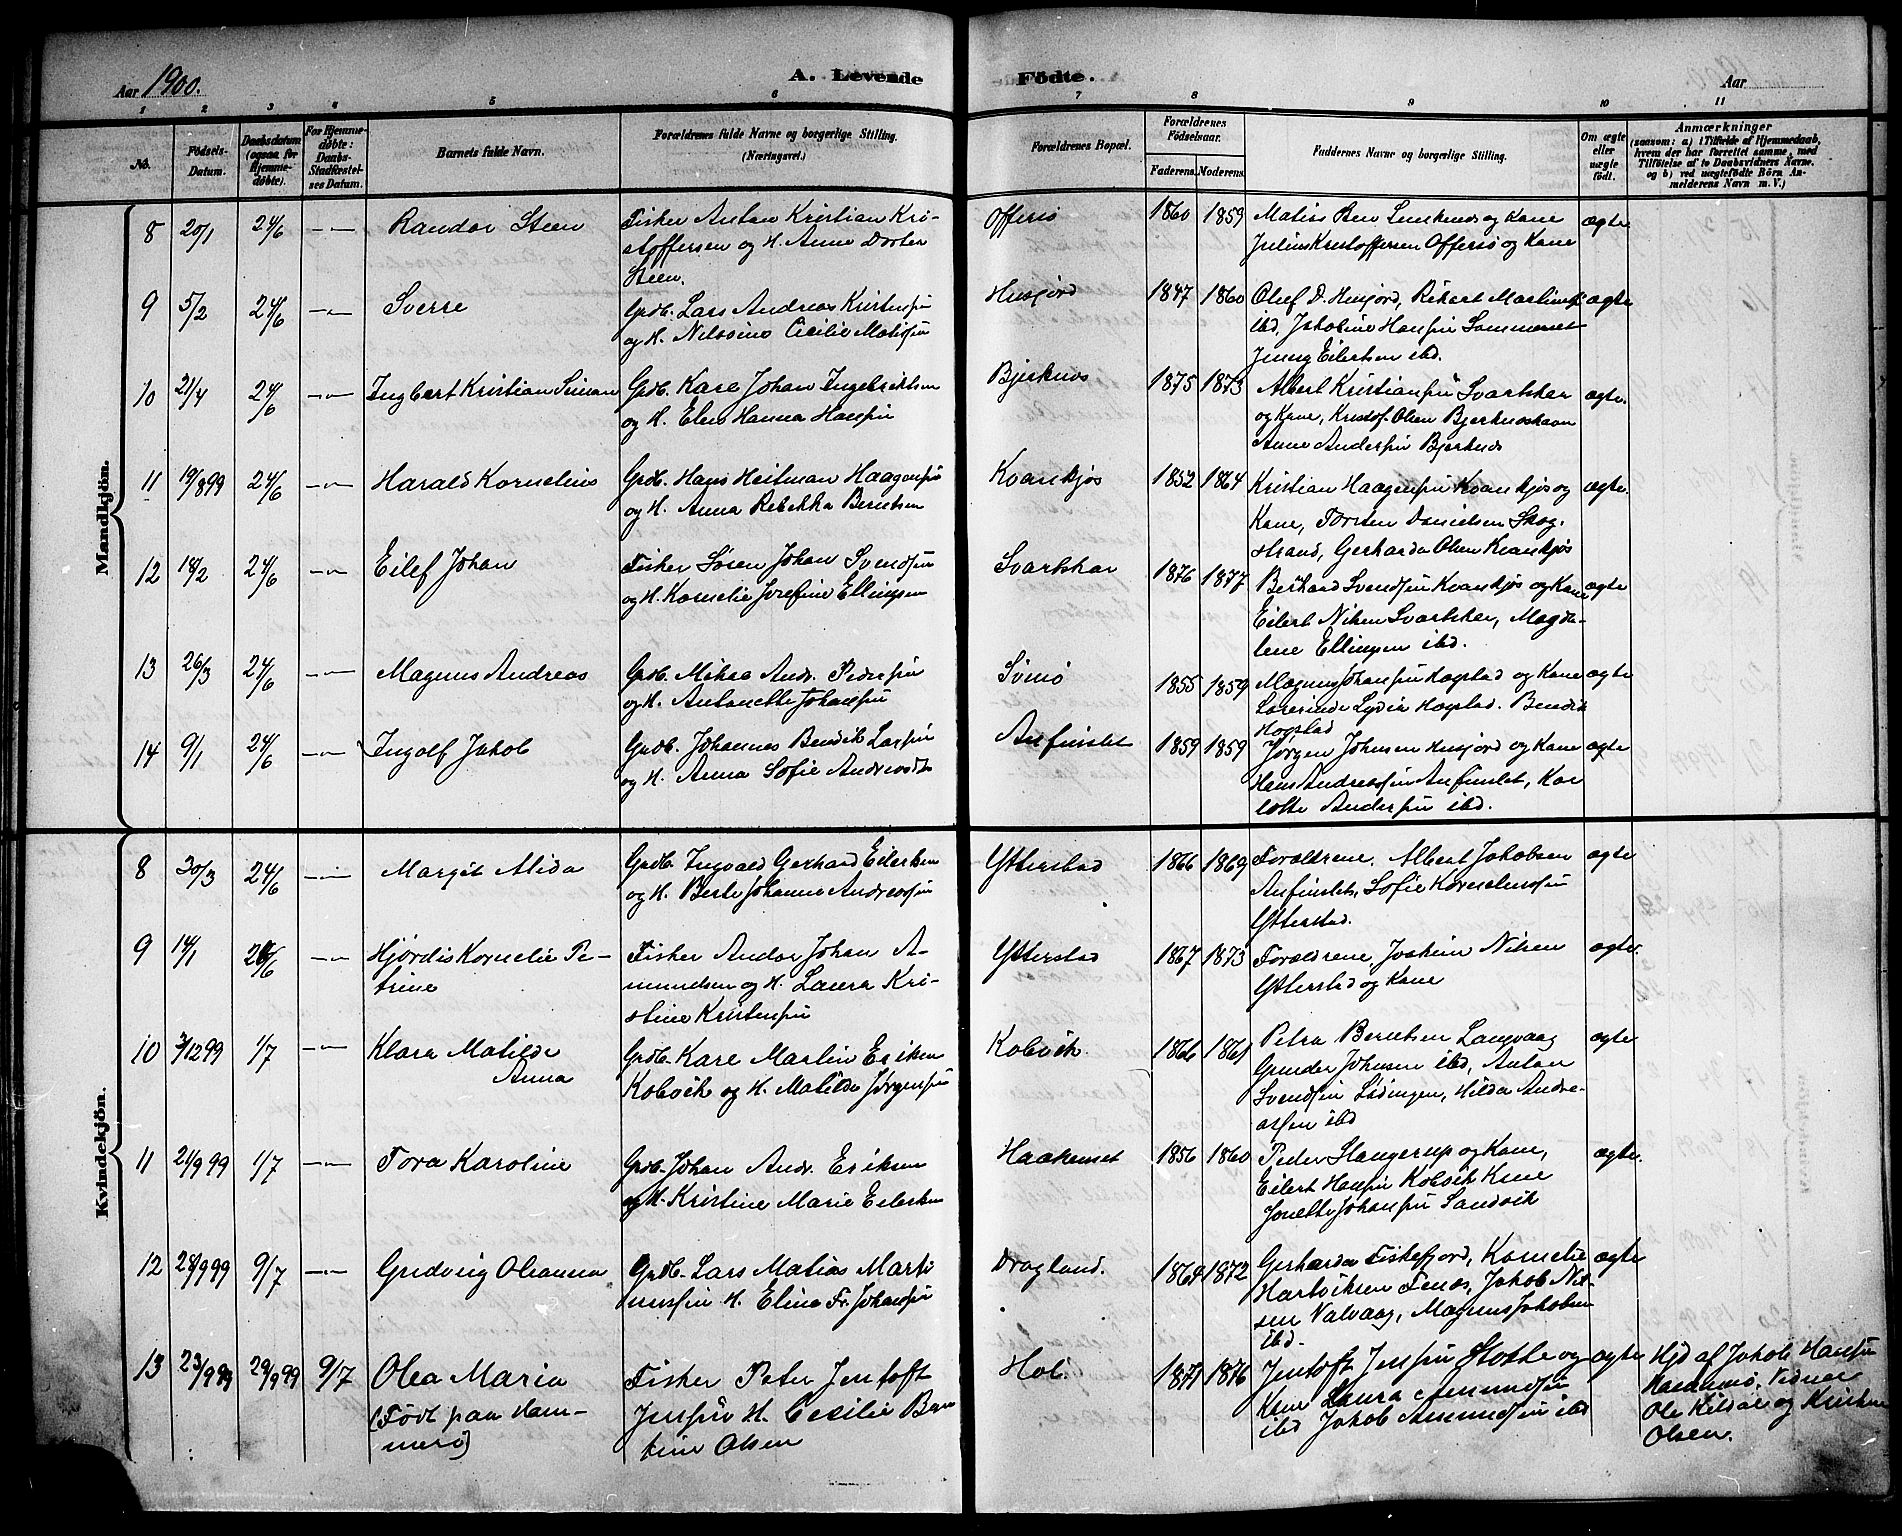 Aar 1900.
A. Levende Fødte.
Aar
1 2 3 4 5 6 7 8 9 10 11
No.
Fødsels-Datum.
Daabsdatum (ogsaa for Hjemme-døbte).
For Hjemme-døbte: Daabs-Stadfæstel-ses Datum.
Barnets fulde Navn.
Forældrenes fulde Navne og borgerlige Stilling. (Næringsvei.)
Forældrenes Bopæl.
Forældrenes Fødselsaar.
Faderens. Moderens.
Faddernes Navne og borgerlige Stilling.
Om ægte eller uægte født.
Anmærkninger
(saasom: a) i Tilfælde af Hjemmedaab, hvem der har forrettet samme, med Tilføielse af to Daabsvidners Navne, og b) ved uægtefødte Børn Anmelderens Navn m. V.)
Mandkjön.
8 20/1 24/6 Randor Steen Fisker Anton Kristian Kri- Offersø 1860 1859 Matias Ben og Kone ægte
stoffersen og H. Anne Dortea Julius Kristoffersen Offersø og Kone
Steen.
9 5/2 24/6 Sverre Grdb. Lars Andreas Kristensen Husjord 1847 1860 Oluf D. Husjord, Rikart Martinus ægte
og H. Nilsine Cicilie Matisen ibd, Jakobine Hansen Sommerset
Jenny Eilertsen ibd.
10 21/4 24/6 Ingbert Kristian Simon Grdb. Kare Johan Ingebriktsen Bjerknes 1875 1873 Albert Kristiansen Svartskar ægte.
og H. Elen Hanna Hansen og Kone, Kristof. Olsen Bjerkneshavn
Anne Andersen Bjerknes
11 19/8 99 24/6 Harald Kornelius Grdb. Hans Heitman Haagensen Kvankjøs 1852 1864 Kristian Haagensen Kvankjøs og ægte.
og H. Anna Rebekka Berntsen Kone, Torsten Danielsen Skog-
strand, Gerharda Olsen Kvankjøs
12 18/2 24/6 Eilef Johan Fisker Søren Johan Svendsen Svartskar 1876 1877 Berhard Svendsen Kvankjøs og Kone ægte
og H. Kornelie Josefine Ellingsen Eilert Nilsen Svartskar, Magda-
lene Ellingsen ibd.
13 26/3 24/6 Magnus Andreas Grdb. Mikal Andr. Pedersen Svinø 1855 1859 Magnus Johansen Hogstad og Kone ægte
og H. Antonette Johansen Lærerinde Lydia Hogstad. Bendik
Hogstad
14 9/1 24/6 Ingolf Jakob Grdb. Johannes Bendik Larsen Anfinslet 1859 1859 Jørgen Johnsen Husjord og Kone ægte
og H. Anna Sofie Andreasdt. Hans Andreassen Anfinslet, Kar
lotte Andersen ibd.
Kvindekjön.
8 30/3 24/6 Margit Alida Grdb. Ingvald Gerhard Eilertsen Ytterstad 1866 1869 Forældrene, Albert Jakobsen ægte
og H. Berte Johanne Andreassen Anfinslet, Sofie Korneliussen
Ytterstad.
9 14/1 24/6 Hjørdis Kornelie Pe- Fisker Andor Johan A- Ytterstad 1867 1873 Forældrene, Joakim Nilsen ægte.
trine mundsen og H. Laura Kri- Ytterstad og Kone
stine Kristensen
10 3/12 99 1/7 Klara Matilde Grdb. Kare Martin Eriksen Kobvik. 1866 1861 Petra Berntsen Langvaag ægte
Anna Kobvik og H. Matilde Jørgensen Gunder Johnsen ibd, Anton
Svendsen Lødingen, Hilda Andre-
assen ibd
11 21/9 99 1/7 Tora Karoline Grdb. Johan Andr. Eriksen Haakenset 1856 1860 Peder Hangerup og Kone, ægte.
og H. Kristine Marie Eilertsen Eilert Hansen Kobvik Kone
Jonette Johansen Sandvik
12 28/9 99 9/7 Gudvig Oleanna Grdb. Lars Matias Marti Dragland. 1864 1872 Gerharda Fiskefjord, Kornelie ægte
nussen H. Elina Fr. Johansen Hartviksen Tenes, Jakob Nil-
sen Valvaag, Magnus Jakobsen
ibd.
13 23/9 99 29/9 99 9/7 Olea Maria Fisker Peter Jentoft Hol. 1877 1876 Jentoft Jensen Slotte og ægte Hjd af Jakob Hansen
(Født paa Ham- Jensen H. Cecilie Ben Kone Laura Amundsen Hammerø. Vidner
merø) tine Olsen ibd Jakob Amundsen ibd Ole Kildal og Kristen
Olsen.